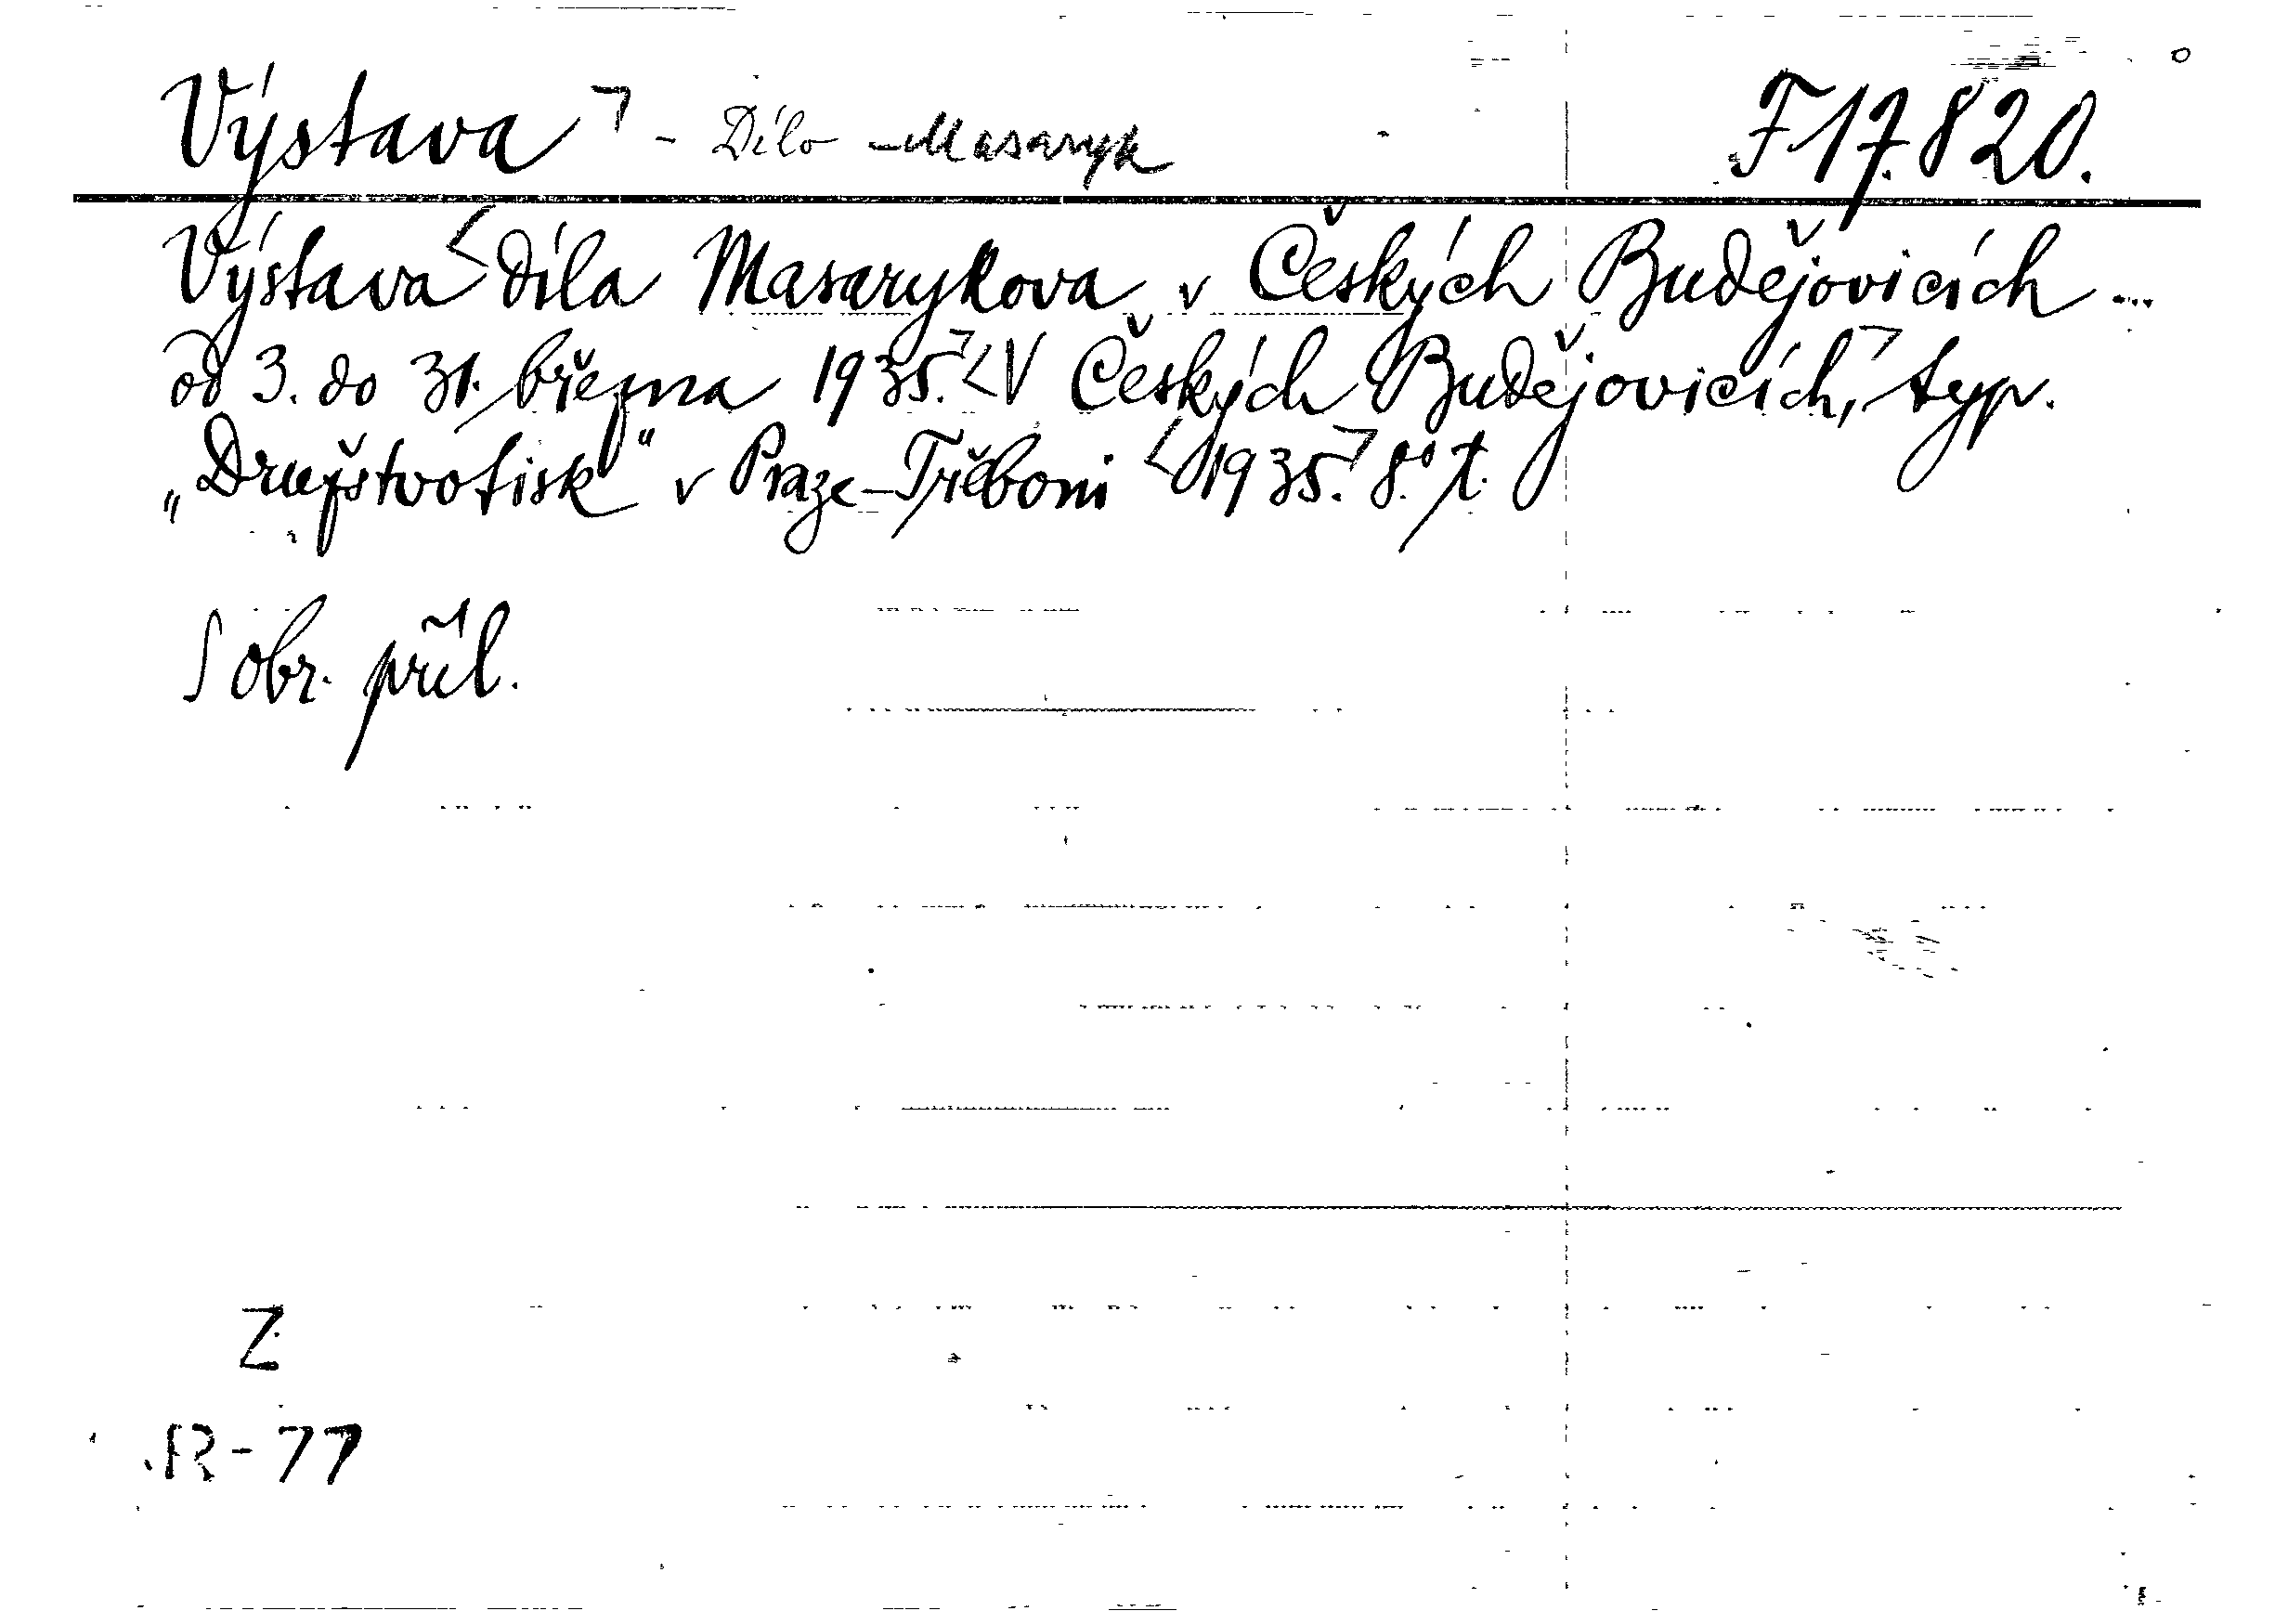 Výstava ⌝ - Dílo - Masaryk F 17.820.
Výstava < díla Masarykova v Českých Budějovicích ...
od 3. do 31. března 1935.⌝ < V Českých Budějovicích,⌝ typ.
„Družstvotisk" v Praze-Třeboni < 1935.⌝ 8.° t.
S obr. příl.
Z
R-77